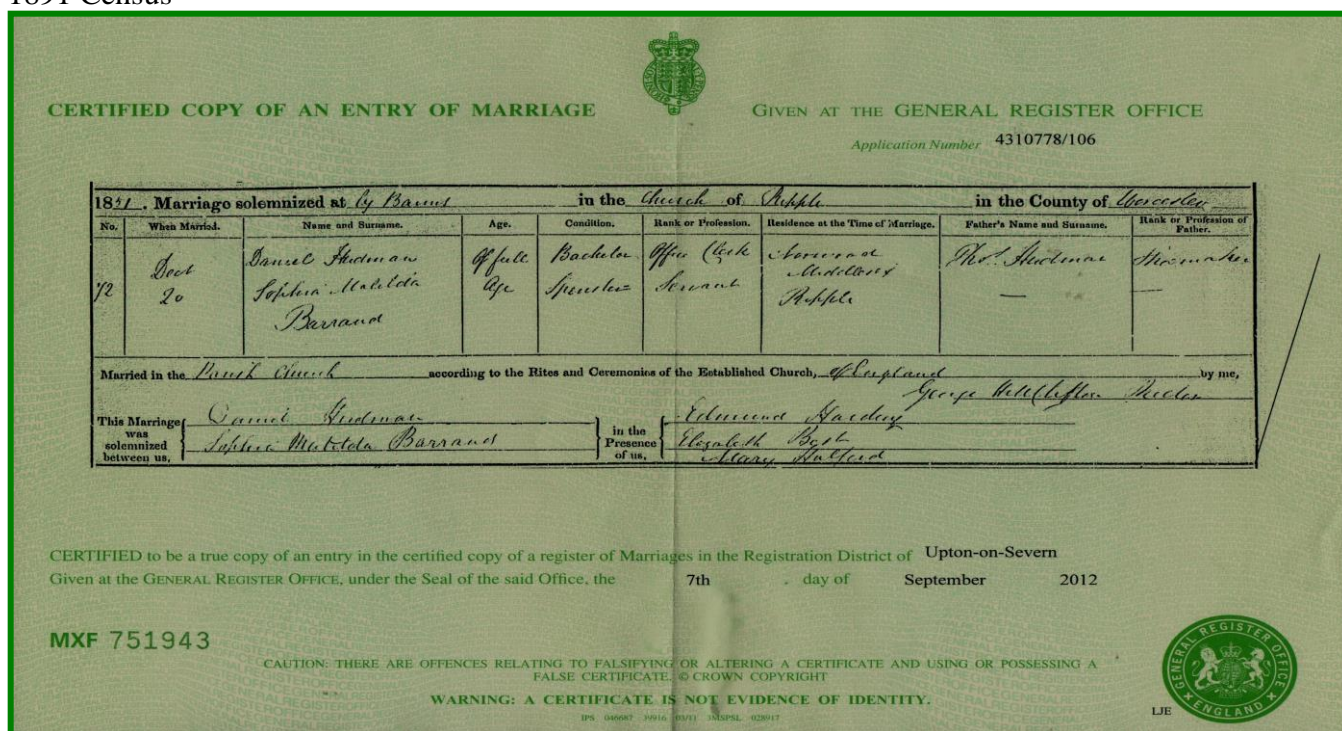 1891 Census
CERTIFIED COPY OF AN ENTRY OF MARRIAGE
GIVEN AT THE GENERAL REGISTER OFFICE
Application Number 4310778/106
1851. Marriage solemnized at by Banns in the Church of Ripple in the County of Worcester
No. When Married. Name and Surname. Age. Condition. Rank or Profession. Residence at the Time of Marriage. Father's Name and Surname. Rank or Profession of Father.
72 20 Daniel Of full Age Bachelor Office Clerk Norwood Middlesex Thos. Shoemaker
Sophia Matilda Barrand Spinster Servant Ripple — —
Married in the Parish Church according to the Rites and Ceremonies of the Established Church, of England by me,
George
This Marriage was solemnized between us, Daniel
Sophia Matilda Barrand
in the Presence of us, Edmund
Elizabeth
Mary
CERTIFIED to be a true copy of an entry in the certified copy of a register of Marriages in the Registration District of Upton-on-Severn
Given at the GENERAL REGISTER OFFICE, under the Seal of the said Office, the 7th day of September 2012
MXF 751943
CAUTION: THERE ARE OFFENCES RELATING TO FALSIFYING OR ALTERING A CERTIFICATE AND USING OR POSSESSING A
FALSE CERTIFICATE. © CROWN COPYRIGHT
WARNING: A CERTIFICATE IS NOT EVIDENCE OF IDENTITY.
GENERAL REGISTER OFFICE
ENGLAND
LJE